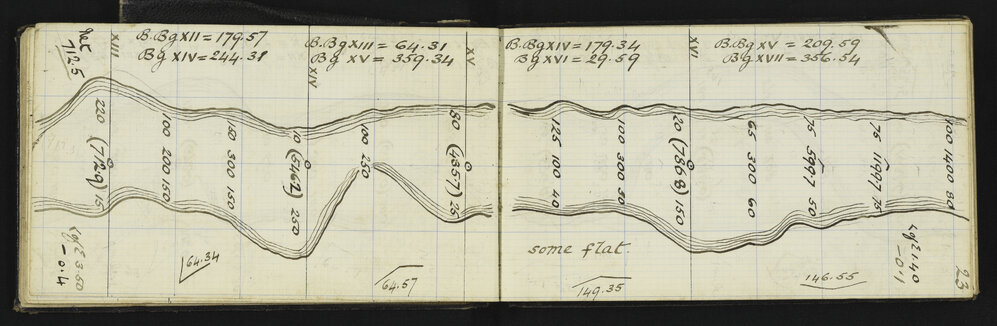 Ret
712.5
XIII
B.Bg XII = 179.57
Bg XIV = 244.31
XIV
B.Bg XIII = 64.31
Bg XV = 359.34
XV
B.Bg XIV = 179.34
Bg XVI = 29.59
XVI
B.Bg XV = 209.59
Bg XVII = 356.54
220 (7129) 15
100 200 150
150 300 150
10 (5462) 250
100 20
80 (4357) 25
125 100 40
100 300 50
20 (7868) 150
65 300 60
75 5997 50
75 11997 75
100 1400 80
some flat.
64.34
64.57
149.35
146.55
- 0.4
- 0.1
23